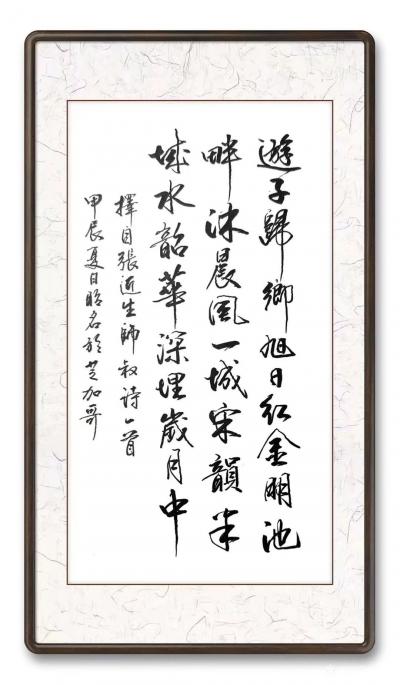 遊子歸鄉旭日紅金明池
畔沐晨風一城宋韻半
城水韶華深埋歲月中
擇目張近生師叔诗一首
甲辰夏日昭名於芝加哥